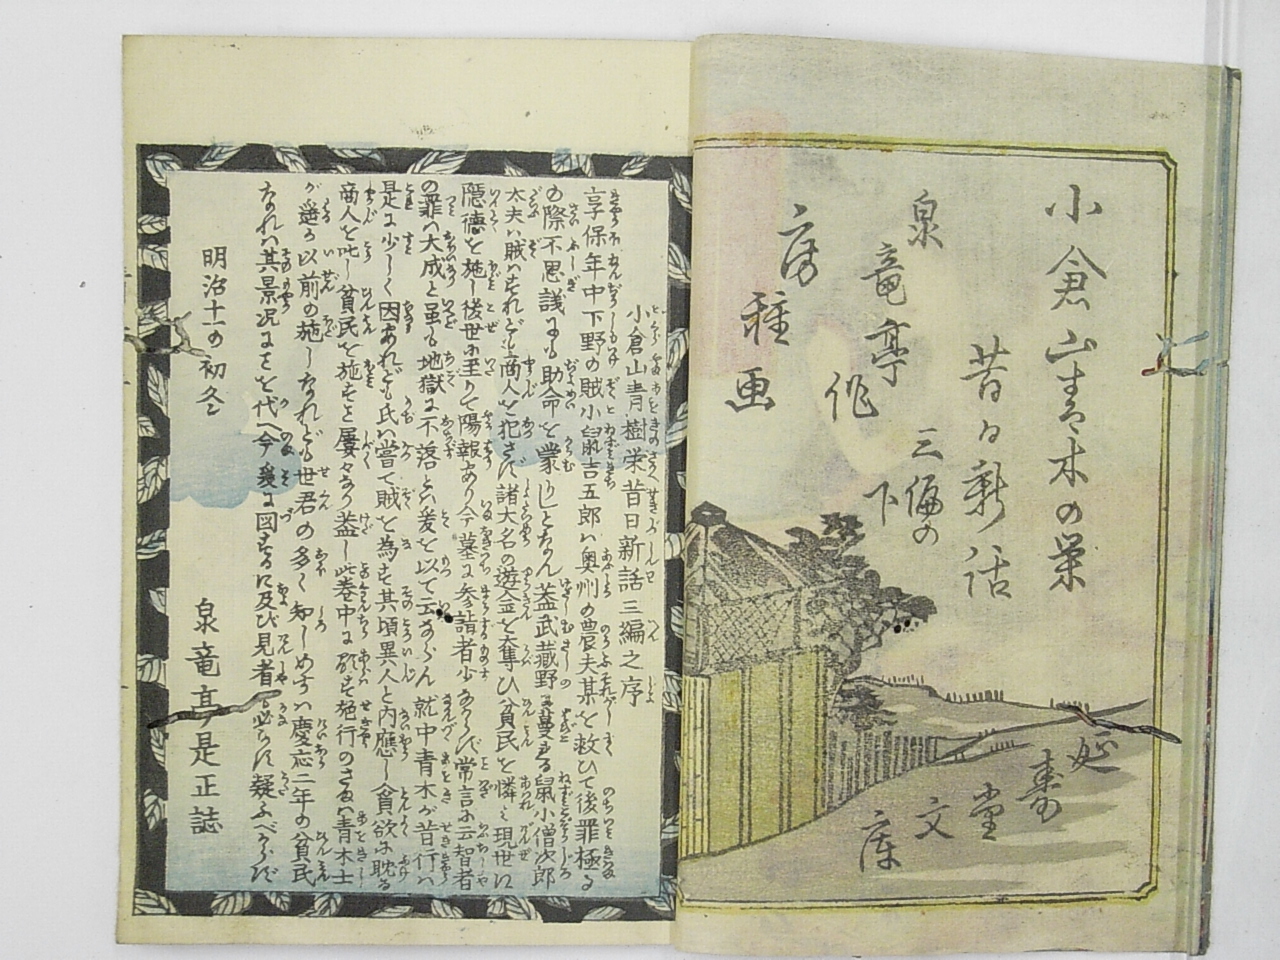 小倉山青木の栄
昔日新話
三偏の
下
泉竜亭
作
房種画
延寿堂
文庫
小倉山青樹栄昔日新話三編之序
享保年中下野の賊小鼠吉五郎ハ奥州の農夫某を救ひて後罪極る
の際不思議にも助命を蒙りしとなん蓋武蔵野に蔓る鼠小僧次郎
太夫ハ賊ハすれども商人を犯さず諸大名の遊金を奪ひ貧民を憐ミ現世に
隠徳を施し後世に至りて陽報あり今墓に参詣者少あらず常言に云智者
の罪ハ大成と雖も地獄に不落とハ爰を以て云ならん就中青木が昔行ハ
是に少しく因あれども氏ハ嘗て賊を為さず其頃異人と内應し貧欲に耽る
商人を叱し貧民を施すこと屡々あり蓋し此巻中に欲す施行のさまハ青木士
が遥か以前の施しなれども世君の多く知しめすハ慶応二年の貧民
なれバ其景况にこを代へ今爰に図するに及び見者必らず疑ふべからず
明治十一の初冬
泉竜亭是正誌